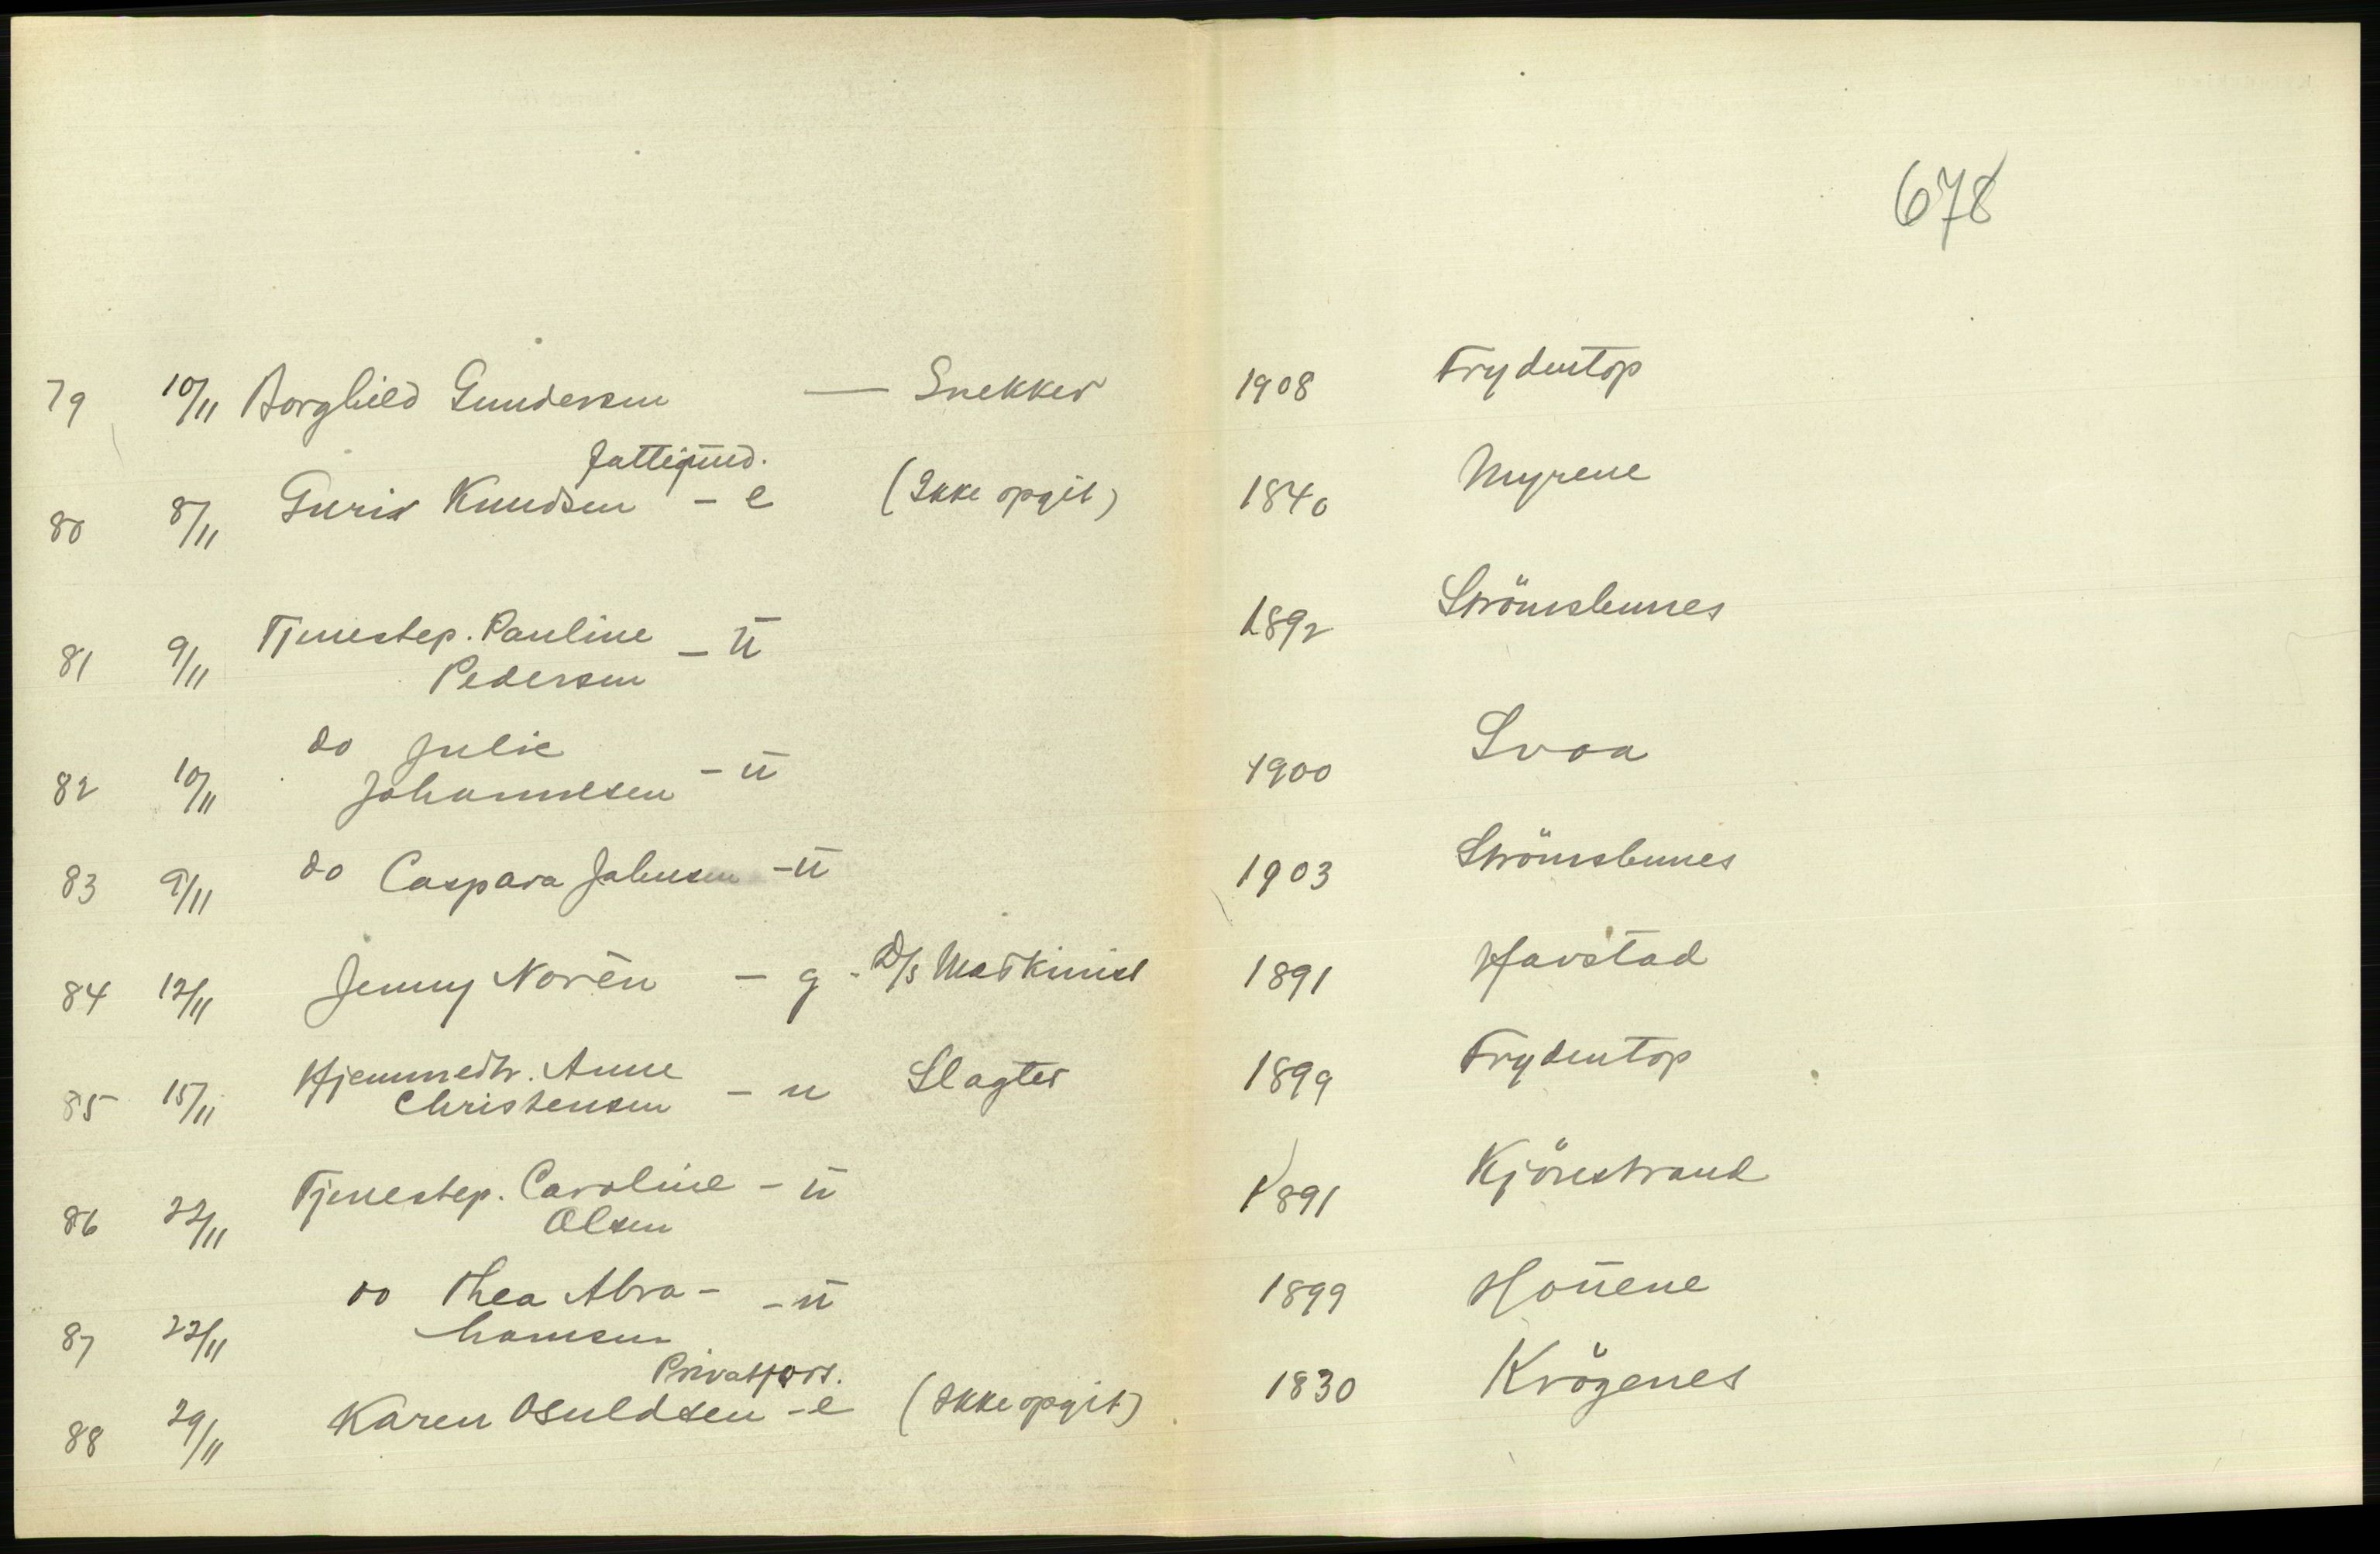 678
79 10/11 Borghild Gundersen — Snekker 1908 Frydentop
Fattigund.
80 8/11 Guri Knudsen - e (Ikke opgit) 1840 Myrene
81 9/11 Tjenestep. Pauline - u 1892 Strömsbunes
Pedersen
do Julie
82 10/11 Johannesen - u 1900 Svoa
83 9/11 do Caspara Johnsen - u 1903 Strömsbunes
84 12/11 Jenny Norèn - g - D/s Maskinist 1891 Havstad
85 15/11 Hjemmedtr. Anne - u Slagter 1899 Frydentop
Christensen
86 22/11 Tjenestep. Caroline - u 1891 Kjörestrand
Olsen
do Thea Abra- - u 1899 Houene
87 22/11 hamsen
Privatfors.
88 29/11 Karen Osuldsen - e (Ikke opgit) 1830 Krögenes